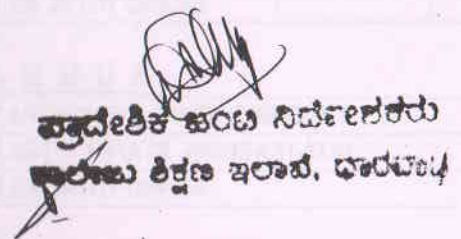 ಪ್ರಾದೇಶಿಕ ಜಂಟಿ ನಿರ್ದೇಶಕರು
ಕಾಲೇಜು ಶಿಕ್ಷಣ ಇಲಾಖೆ, ಧಾರವಾಡ